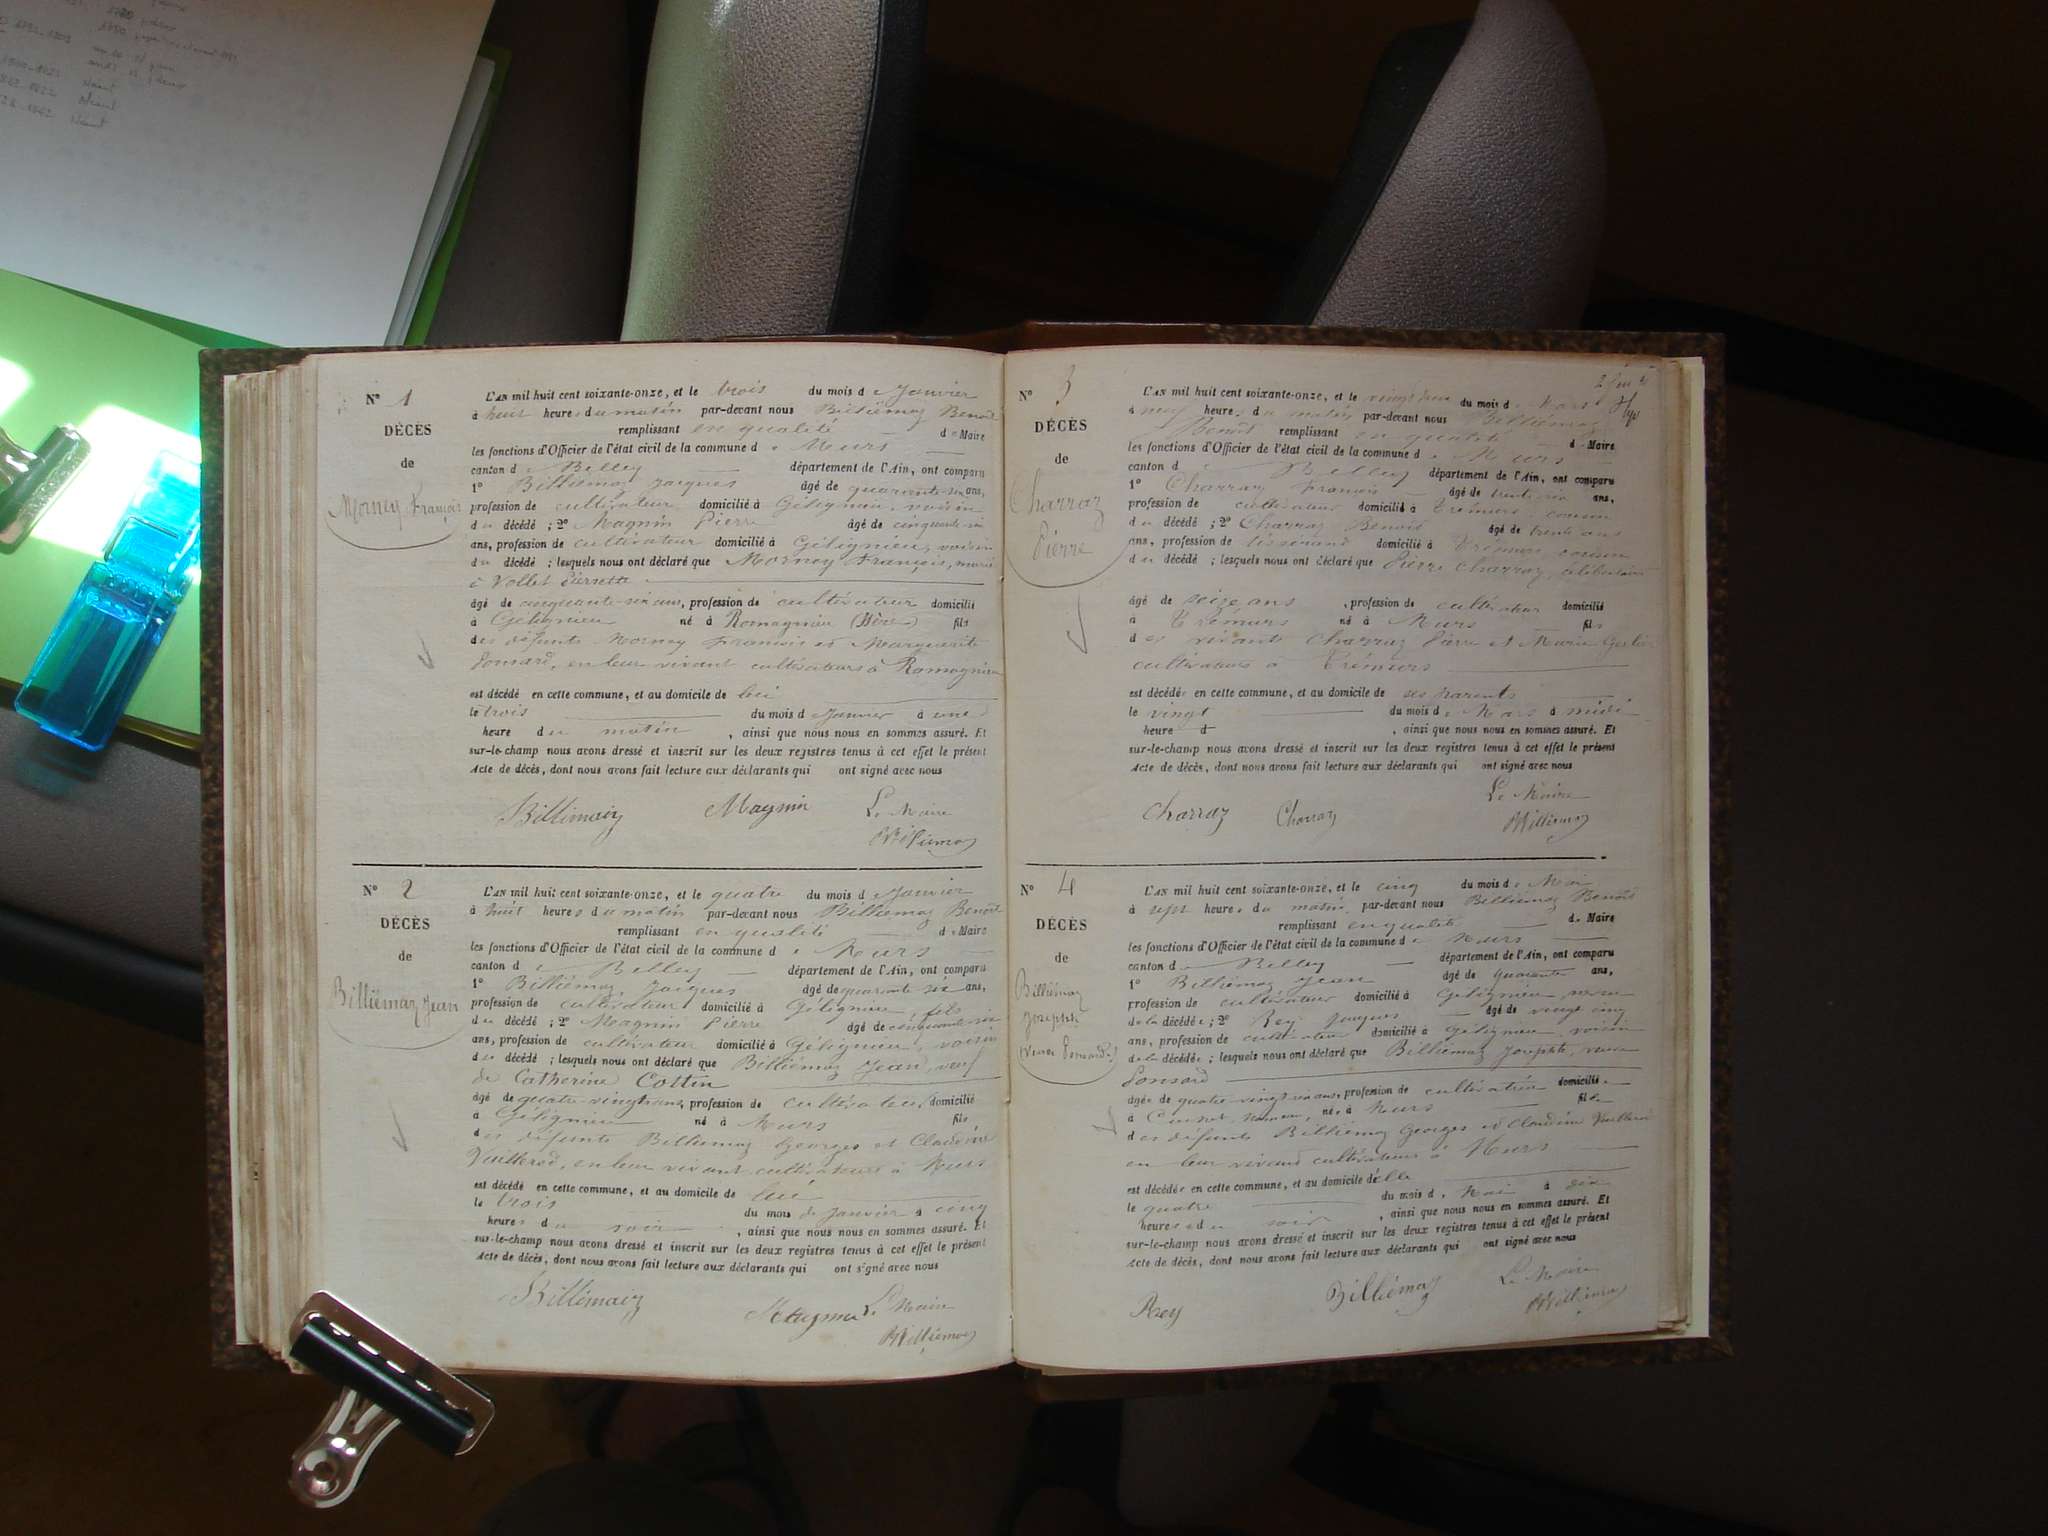 N° 1
DÉCÈS
de
Morney François
L'AN mil huit cent soixante-onze, et le trois du mois de Janvier
à huit heures du matin par-devant nous Billiémaz Benoît
remplissant en qualité de Maire
les fonctions d'Officier de l'état civil de la commune de Murs
canton de Belley département de l'Ain, ont comparu
1° Billiémaz Jacques âgé de quarante-six ans,
profession de cultivateur domicilié à Gélignieu, voisin
du décédé ; 2° Magnin Pierre âgé de cinquante-six
ans, profession de cultivateur domicilié à Gélignieu, voisin
du décédé ; lesquels nous ont déclaré que Morney François, marié
à Vollet Pierrette
âgé de cinquante-six ans, profession de cultivateur domicilié
à Gélignieu né à Romagnieu (Isère) fils
des défunts Morney François et Marguerite
Ponsard, en leur vivant cultivateurs à Romagnieu
est décédé en cette commune, et au domicile de lui
le trois du mois de Janvier à une
heure du matin, ainsi que nous nous en sommes assuré. Et
sur-le-champ nous avons dressé et inscrit sur les deux registres tenus à cet effet le présent
Acte de décès, dont nous avons fait lecture aux déclarants qui ont signé avec nous
Billimaiz Magnin Le Maire
Billiémaz
N° 2
DÉCÈS
de
Billiémaz Jean
L'AN mil huit cent soixante-onze, et le quatre du mois de Janvier
à huit heures du matin par-devant nous Billiémaz Benoît
remplissant en qualité de Maire
les fonctions d'Officier de l'état civil de la commune de Murs
canton de Belley département de l'Ain, ont comparu
1° Billiémaz Jacques âgé de quarante six ans,
profession de cultivateur domicilié à Gélignieu, fils
du décédé ; 2° Magnin Pierre âgé de cinquante-six
ans, profession de cultivateur domicilié à Gélignieu, voisin
du décédé ; lesquels nous ont déclaré que Billiémaz Jean, veuf
de Catherine Cottin
âgé de quatre-vingts ans, profession de cultivateur, domicilié
à Gélignieu né à Murs fils
des défunts Billiémaz Georges et Claudine
Vuillerod, en leur vivant cultivateurs à Murs
est décédé en cette commune, et au domicile de lui
le trois du mois de Janvier à cinq
heures du soir, ainsi que nous nous en sommes assuré. Et
sur-le-champ nous avons dressé et inscrit sur les deux registres tenus à cet effet le présent
Acte de décès, dont nous avons fait lecture aux déclarants qui ont signé avec nous
Billimaiz Magnin Le Maire
Billiémaz
N° 3
DÉCÈS
de
Charraz
Pierre
L'AN mil huit cent soixante-onze, et le vingt deux du mois de Mars
à neuf heures du matin par-devant nous Billiémaz
Benoît remplissant en qualité de Maire
les fonctions d'Officier de l'état civil de la commune de Murs
canton de Belley département de l'Ain, ont comparu
1° Charraz François âgé de trente six ans,
profession de cultivateur domicilié à Crémurs, cousin
du décédé ; 2° Charraz Benoît âgé de trente ans
ans, profession de tisserand domicilié à Crémurs, cousin
du décédé ; lesquels nous ont déclaré que Pierre Charraz, célibataire
âgé de seize ans, profession de cultivateur domicilié
à Crémurs né à Murs fils
des vivants Charraz Pierre et Marie
cultivateurs à Crémurs
est décédé en cette commune, et au domicile de ses parents
le vingt du mois de Mars à midi
heure d, ainsi que nous nous en sommes assuré. Et
sur-le-champ nous avons dressé et inscrit sur les deux registres tenus à cet effet le présent
Acte de décès, dont nous avons fait lecture aux déclarants qui ont signé avec nous
Charraz Charraz Le Maire
Billiémaz
N° 4
DÉCÈS
de
Billiémaz
Josephte
(veuve Ponsard)
L'AN mil huit cent soixante-onze, et le cinq du mois de Mai
à sept heures du matin, par-devant nous Billiémaz Benoît
remplissant en qualité de Maire
les fonctions d'Officier de l'état civil de la commune de Murs
canton de Belley département de l'Ain, ont comparu
1° Billiémaz Jean âgé de quarante ans,
profession de cultivateur domicilié à Gélignieu,
de la décédée ; 2° Rey Jacques âgé de vingt cinq
ans, profession de cultivateur domicilié à Gélignieu, voisin
de la décédée ; lesquels nous ont déclaré que Billiémaz Josephte, veuve
Ponsard
âgée de quatre-vingt ans, profession de cultivatrice domiciliée
à née à Murs fille
des défunts Billiémaz Georges et Claudine Vuillerod
en leur vivant cultivateurs à Murs
est décédée en cette commune, et au domicile d'elle
le quatre du mois de Mai à dix
heures du soir, ainsi que nous nous en sommes assuré. Et
sur-le-champ nous avons dressé et inscrit sur les deux registres tenus à cet effet le présent
Acte de décès, dont nous avons fait lecture aux déclarants qui ont signé avec nous
Rey Billiémaz Le Maire
Billiémaz